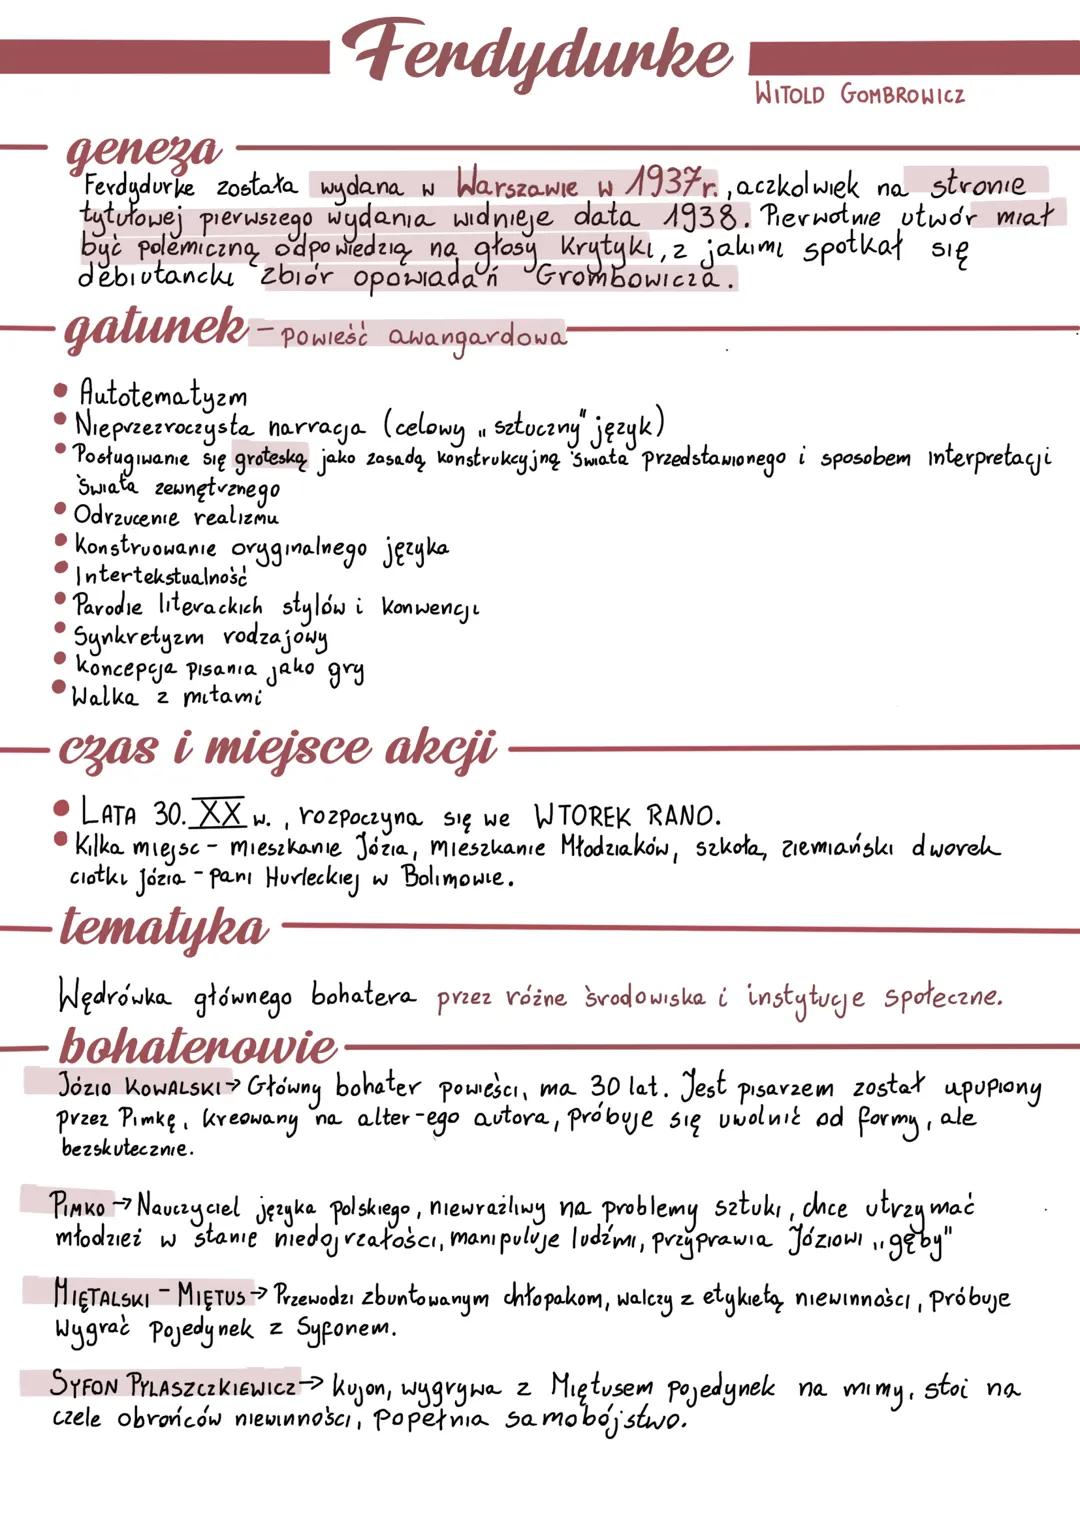 Ferdydurke
WITOLD GOMBROWICZ
geneza
Ferdydurke została wydana w Warszawie w 1937r., aczkolwiek na stronie
tytułowej pierwszego wydania widnieje data 1938. Pierwotnie utwór miał
być polemiczną odpowiedzią na głosy krytyki, z jakimi spotkał się
debiutancki zbiór opowiadań Grombowicza.
gatunek - powieść awangardowa
• Autotematyzm
• Nieprzezroczysta narracja (celowy „sztuczny" język)
• Posługiwanie się groteską jako zasadą konstrukcyjną świata przedstawionego i sposobem interpretacji
świata zewnętrznego
• Odrzucenie realizmu
• Konstruowanie oryginalnego języka
• Intertekstualność
• Parodie literackich stylów i konwencji
• Synkretyzm rodzajowy
• Koncepcja pisania jako gry
• Walka z mitami
czas i miejsce akcji
• LATA 30. XX w., rozpoczyna się we WTOREK RANO.
• Kilka miejsc - mieszkanie Józia, mieszkanie Młodziaków, szkoła, ziemiański dworek
ciotki Józia - pani Hurleckiej w Bolimowie.
tematyka
Wędrówka głównego bohatera przez różne środowiska i instytucje społeczne.
bohaterowie
JÓZIO KOWALSKI → Główny bohater powieści, ma 30 lat. Jest pisarzem został upupiony
przez Pimkę, kreowany na alter-ego autora, próbuje się uwolnić od formy, ale
bezskutecznie.
PIMKO → Nauczyciel języka polskiego, niewrażliwy na problemy sztuki, chce utrzymać
młodzież w stanie niedojrzałości, manipuluje ludźmi, przyprawia Józiowi „gęby"
MIĘTALSKI - MIĘTUS → Przewodzi zbuntowanym chłopakom, walczy z etykietą niewinności, próbuje
wygrać pojedynek z Syfonem.
SYFON PYLASZCZKIEWICZ → kujon, wygrywa z Miętusem pojedynek na mimy, stoi na
czele obrońców niewinności, popełnia samobójstwo.